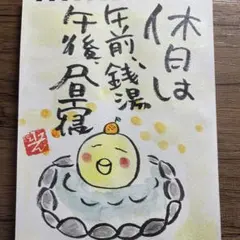 休日は
午前、銭湯
午後、昼寝